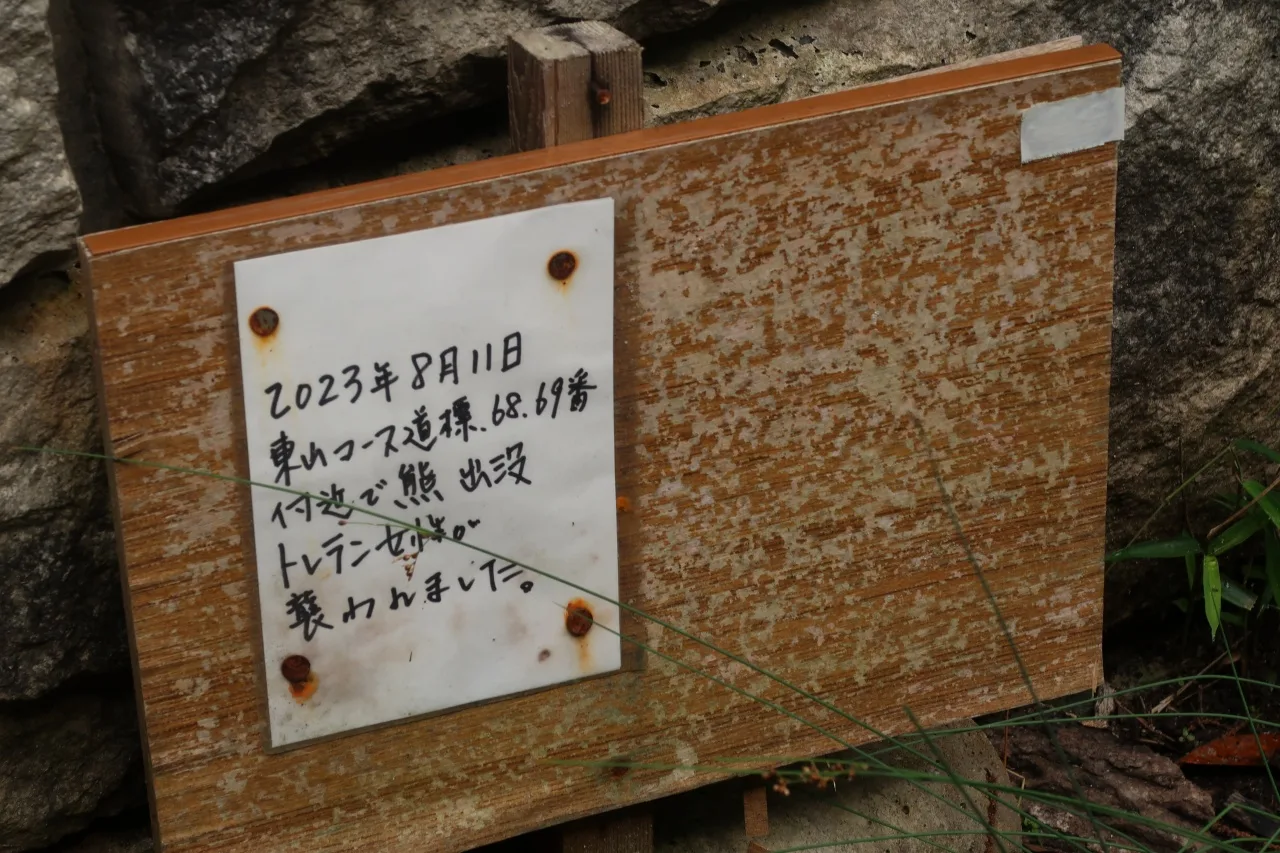 2023年8月11日
東山コース道標.68.69番
付近で熊出没
トレラン女性が
襲われました。